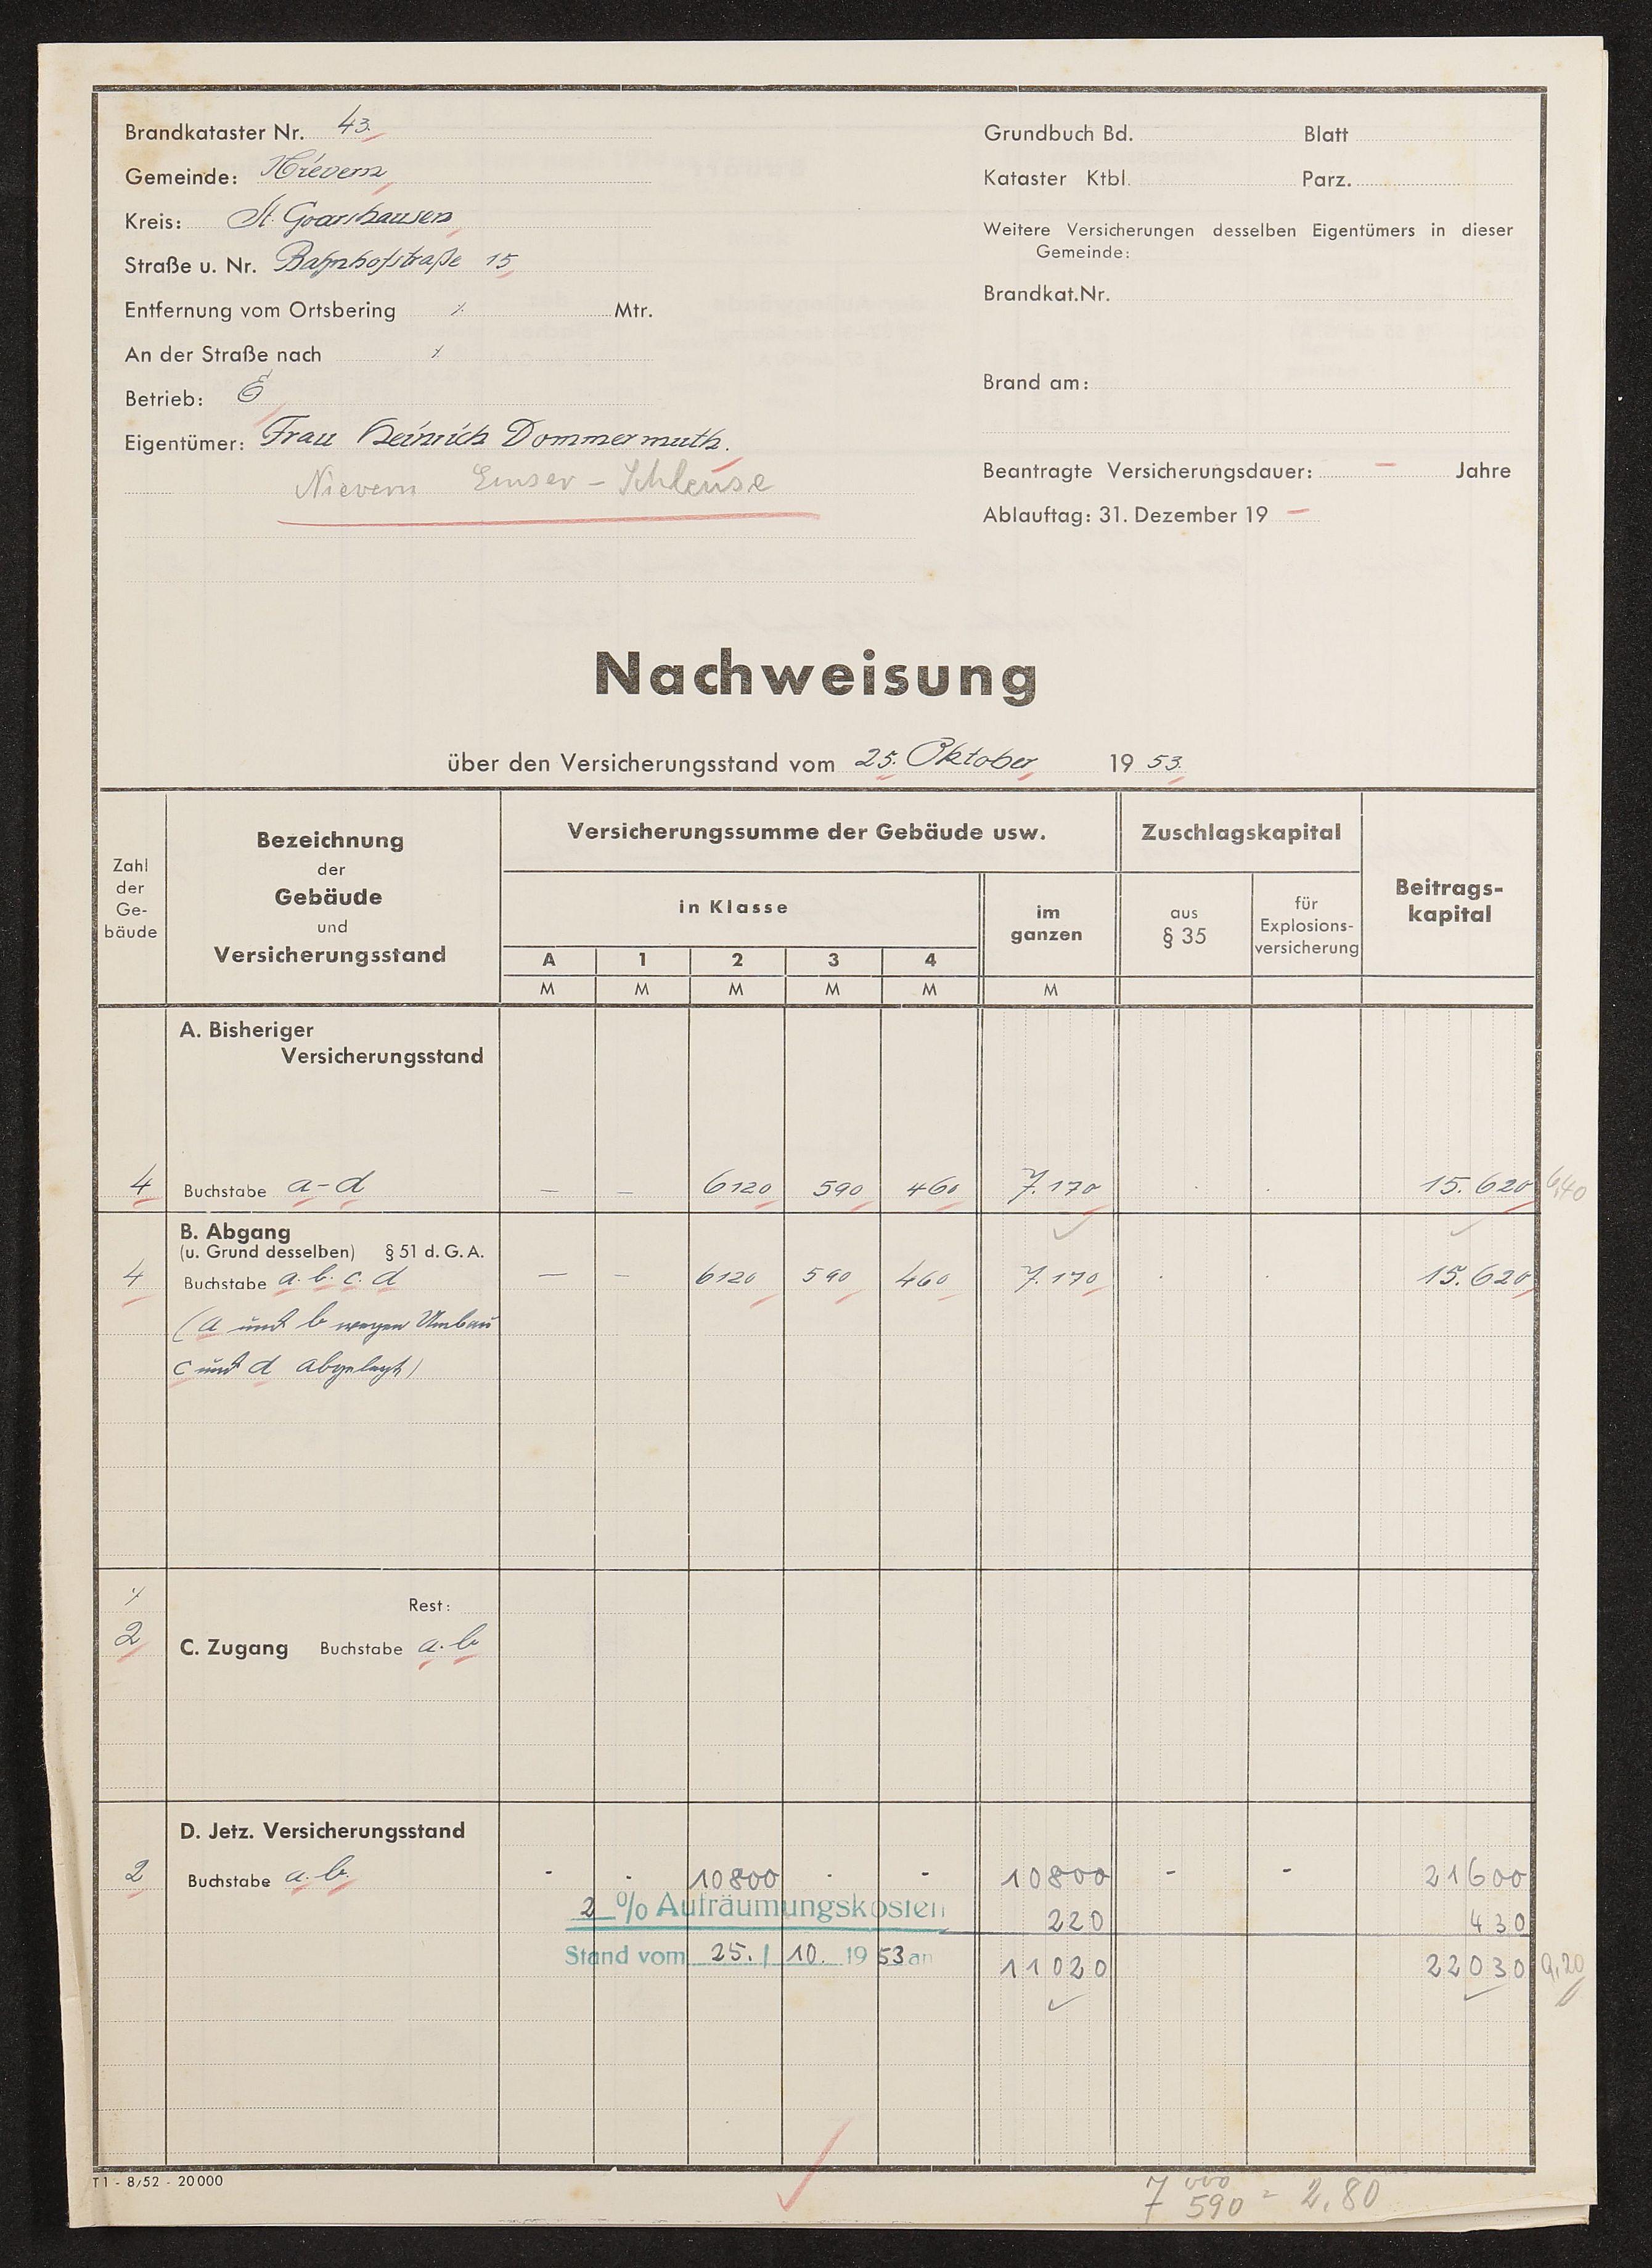 Brandkataster Nr. 43.
Gemeinde: Nievern
Kreis: St. Goarshausen
Straße u. Nr. Bahnhofstraße 15
Entfernung vom Ortsbering Mtr.
An der Straße nach
Betrieb:
Eigentümer: Frau Heinrich Dommermuth.
Nievern Emser-Schleuse
Grundbuch Bd. Blatt
Kataster Ktbl. Parz.
Weitere Versicherungen desselben Eigentümers in dieser
Gemeinde:
Brandkat.Nr.
Brand am:
Beantragte Versicherungsdauer: — Jahre
Ablauftag: 31. Dezember 19 —
Nachweisung
über den Versicherungsstand vom 25. Oktober 1953.
Zahl
der
Ge-
bäude
Bezeichnung
der
Gebäude
und
Versicherungsstand
Versicherungssumme der Gebäude usw.
in Klasse
A 1 2 3 4
M M M M M
im
ganzen
M
Zuschlagskapital
aus
§ 35
für
Explosions-
versicherung
Beitrags-
kapital
A. Bisheriger
Versicherungsstand
4 Buchstabe a-d — — 6120 590 460 7.170 15.620 6,40
B. Abgang
(u. Grund desselben) § 51 d. G. A.
4 Buchstabe a. b. c. d — — 6120 590 460 7.170 15.620
(a und b wegen Umbau
c und d abgelegt)
Rest:
2 C. Zugang Buchstabe a. b
D. Jetz. Versicherungsstand
2 Buchstabe a. b. - - 10800 - - 10800 - - 21600
2 % Aufräumungskosten 220 430
Stand vom 25. / 10. 1953 an 11020 22030 9,20
T1 - 8/52 - 20000
7 000
7 590 = 2,80